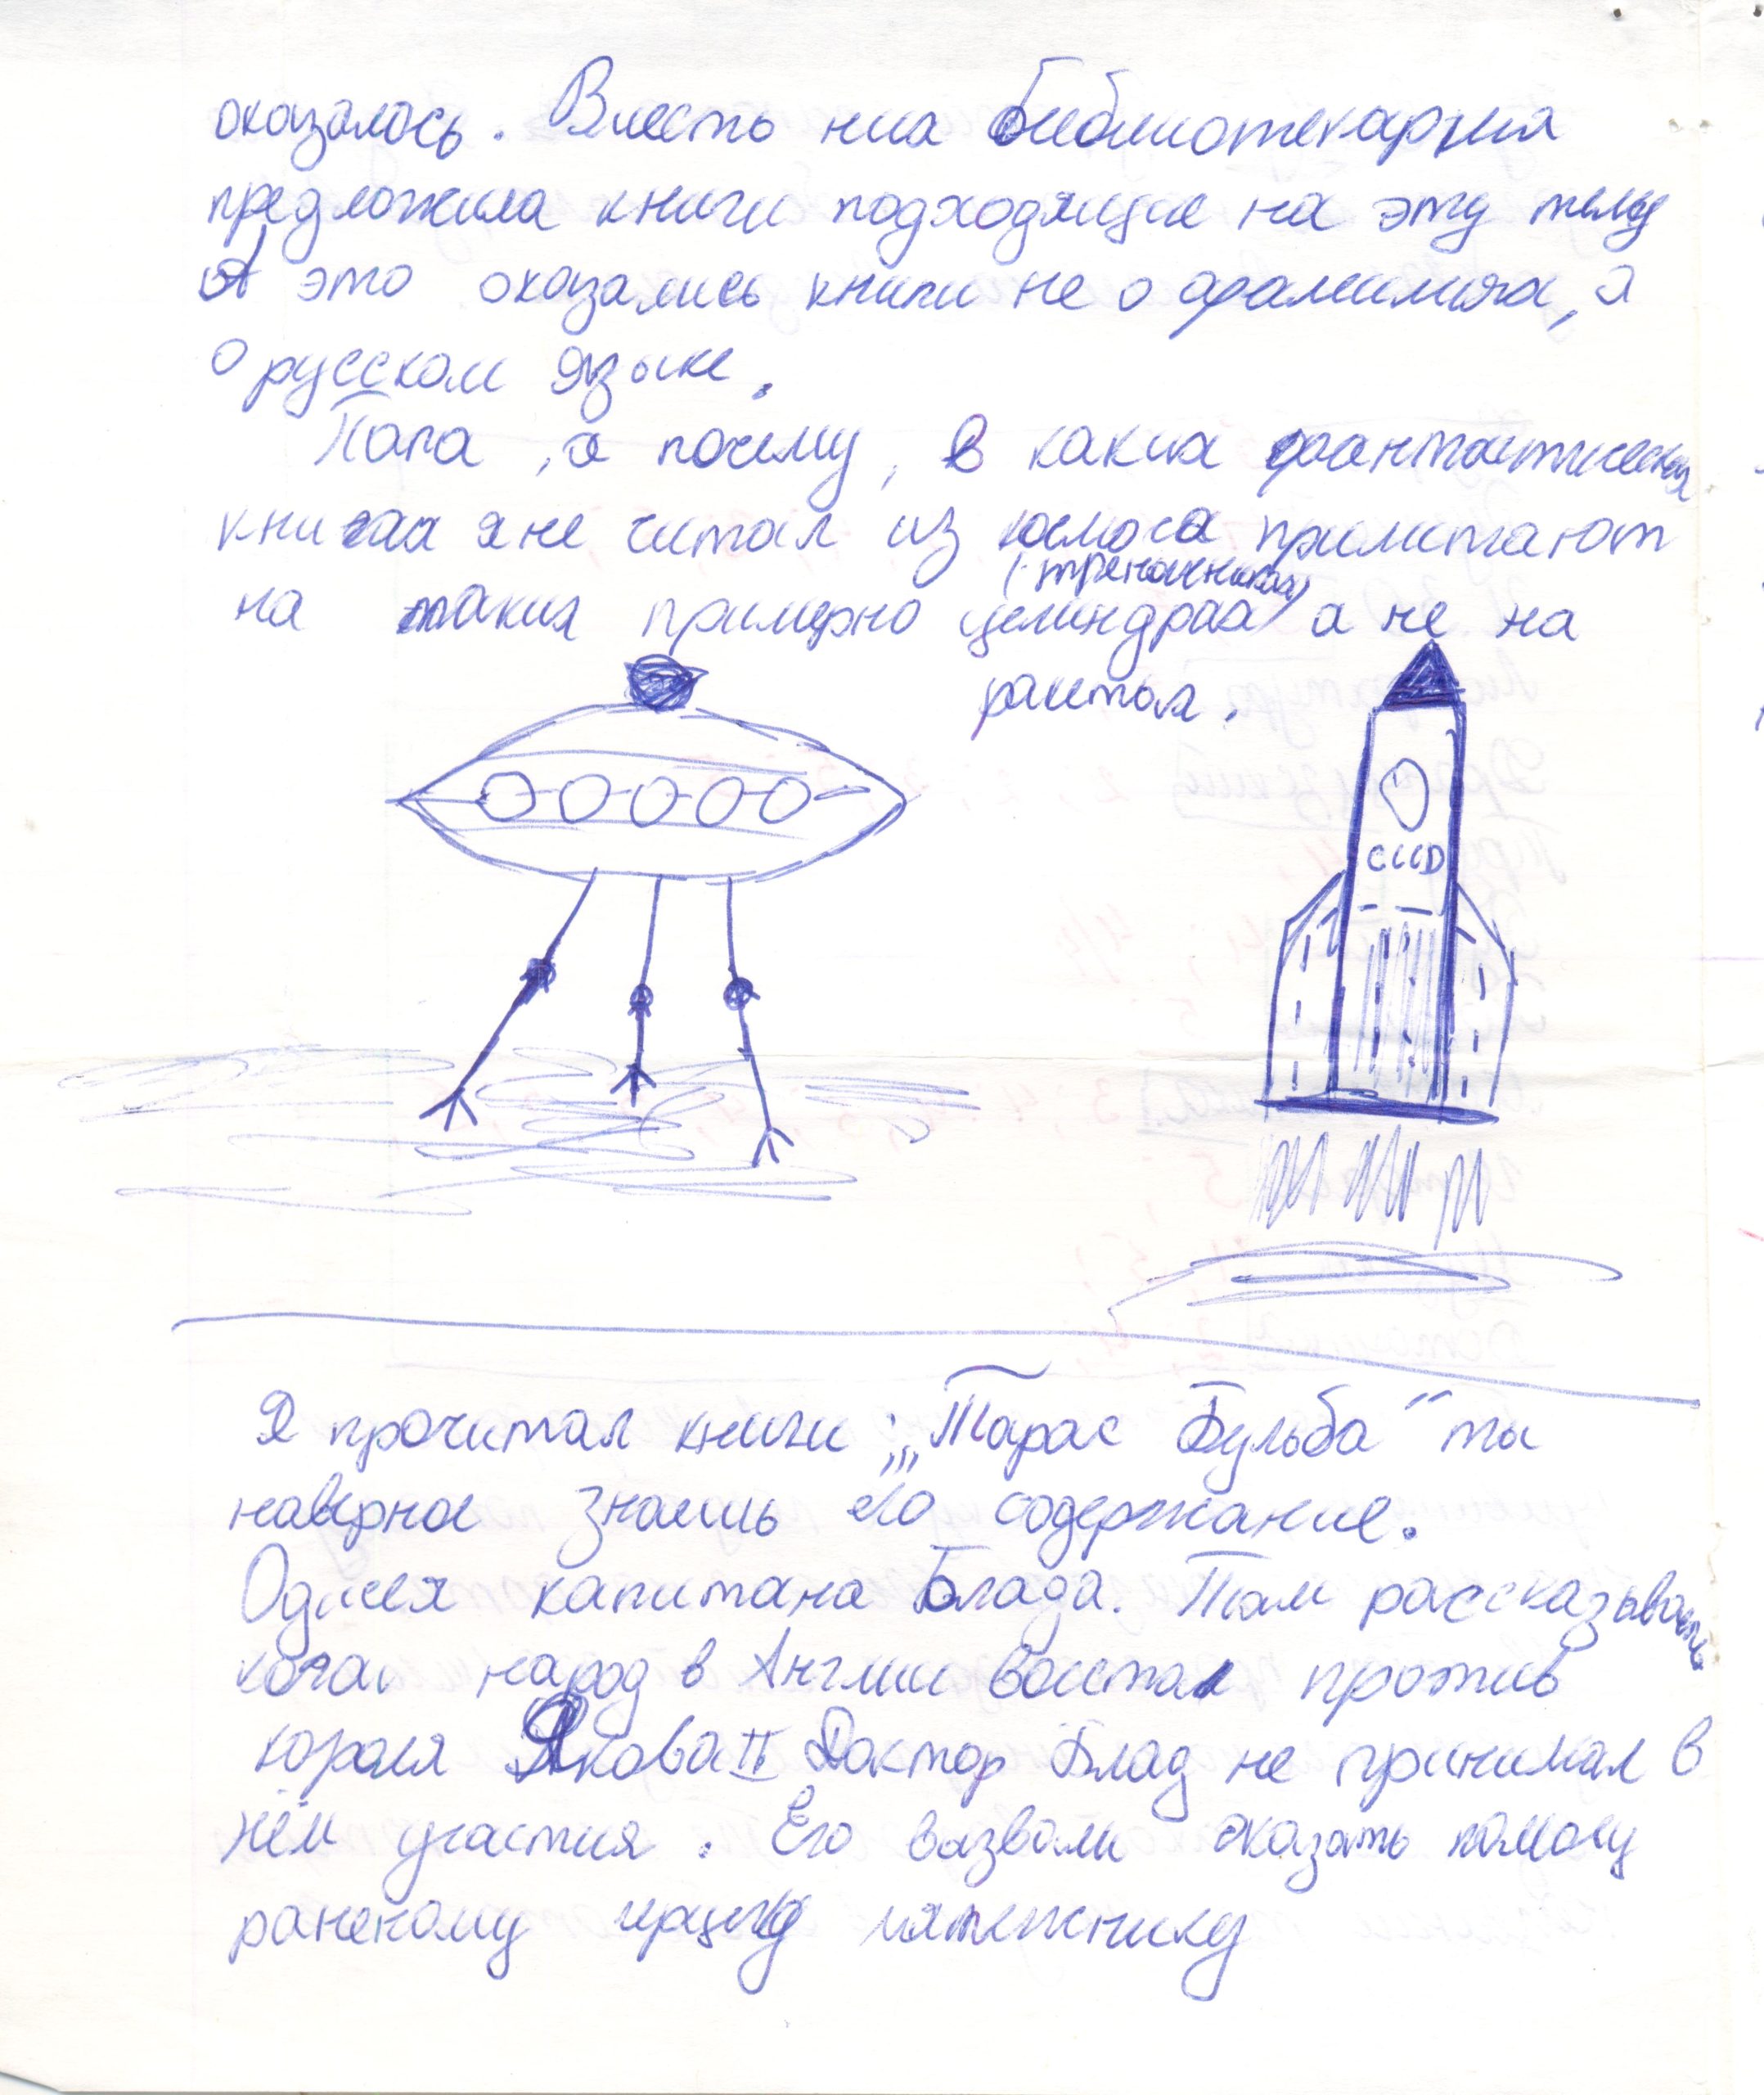 оказалось. Вместь них библиотекарша
предложила книги подходящие на эту тему
А это оказались книги не о фамилиях, а
о русском языке.
Папа, а почему, в каких фантастических
книгах я не читал из космоса прилетают
на таких примерно целиндрах а не на
(треножниках)
ракетах.
СССР
Я прочитал книги: „Тарас Бульба“ ты
наверное знаешь его содержание.
Одисея капитана Блада. Там рассказывается
когда народ в Англии восстал против
короля Якова II Доктор Блад не принимал в
нём участия. Его вазвали оказать помощ
раненому мятежнику